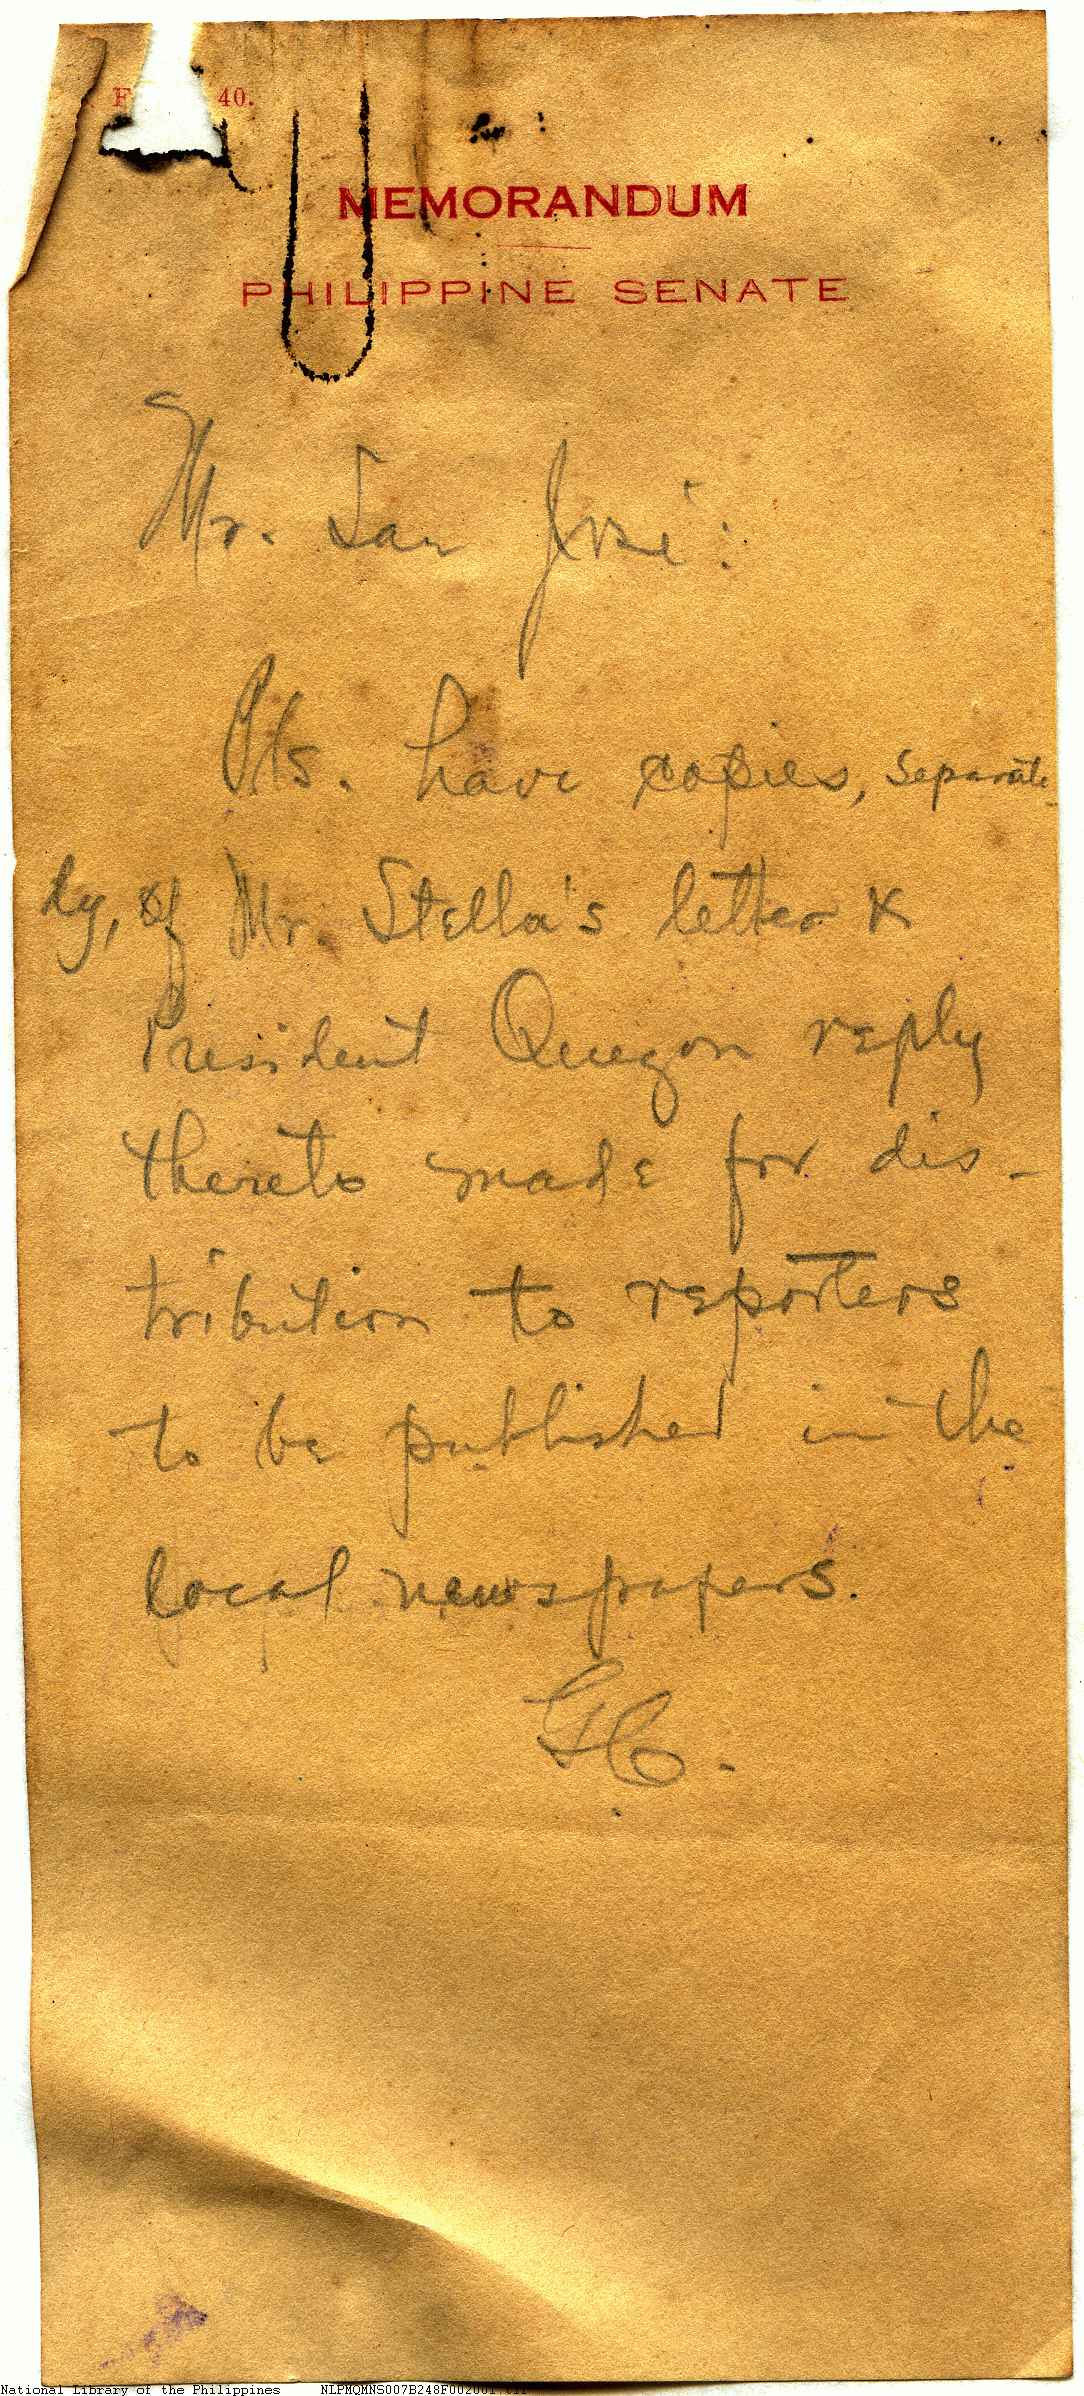 F 40.
MEMORANDUM
PHILIPPINE SENATE
Mr. San José:
Pls. have copies, separate-
ly, of Mr. Stella's letter &
President Quezon reply
thereto made for dis-
tribution to reporters
to be published in the
local newspapers.
GC.
National Library of the Philippines NLPMQMNS007B248F002001.tif